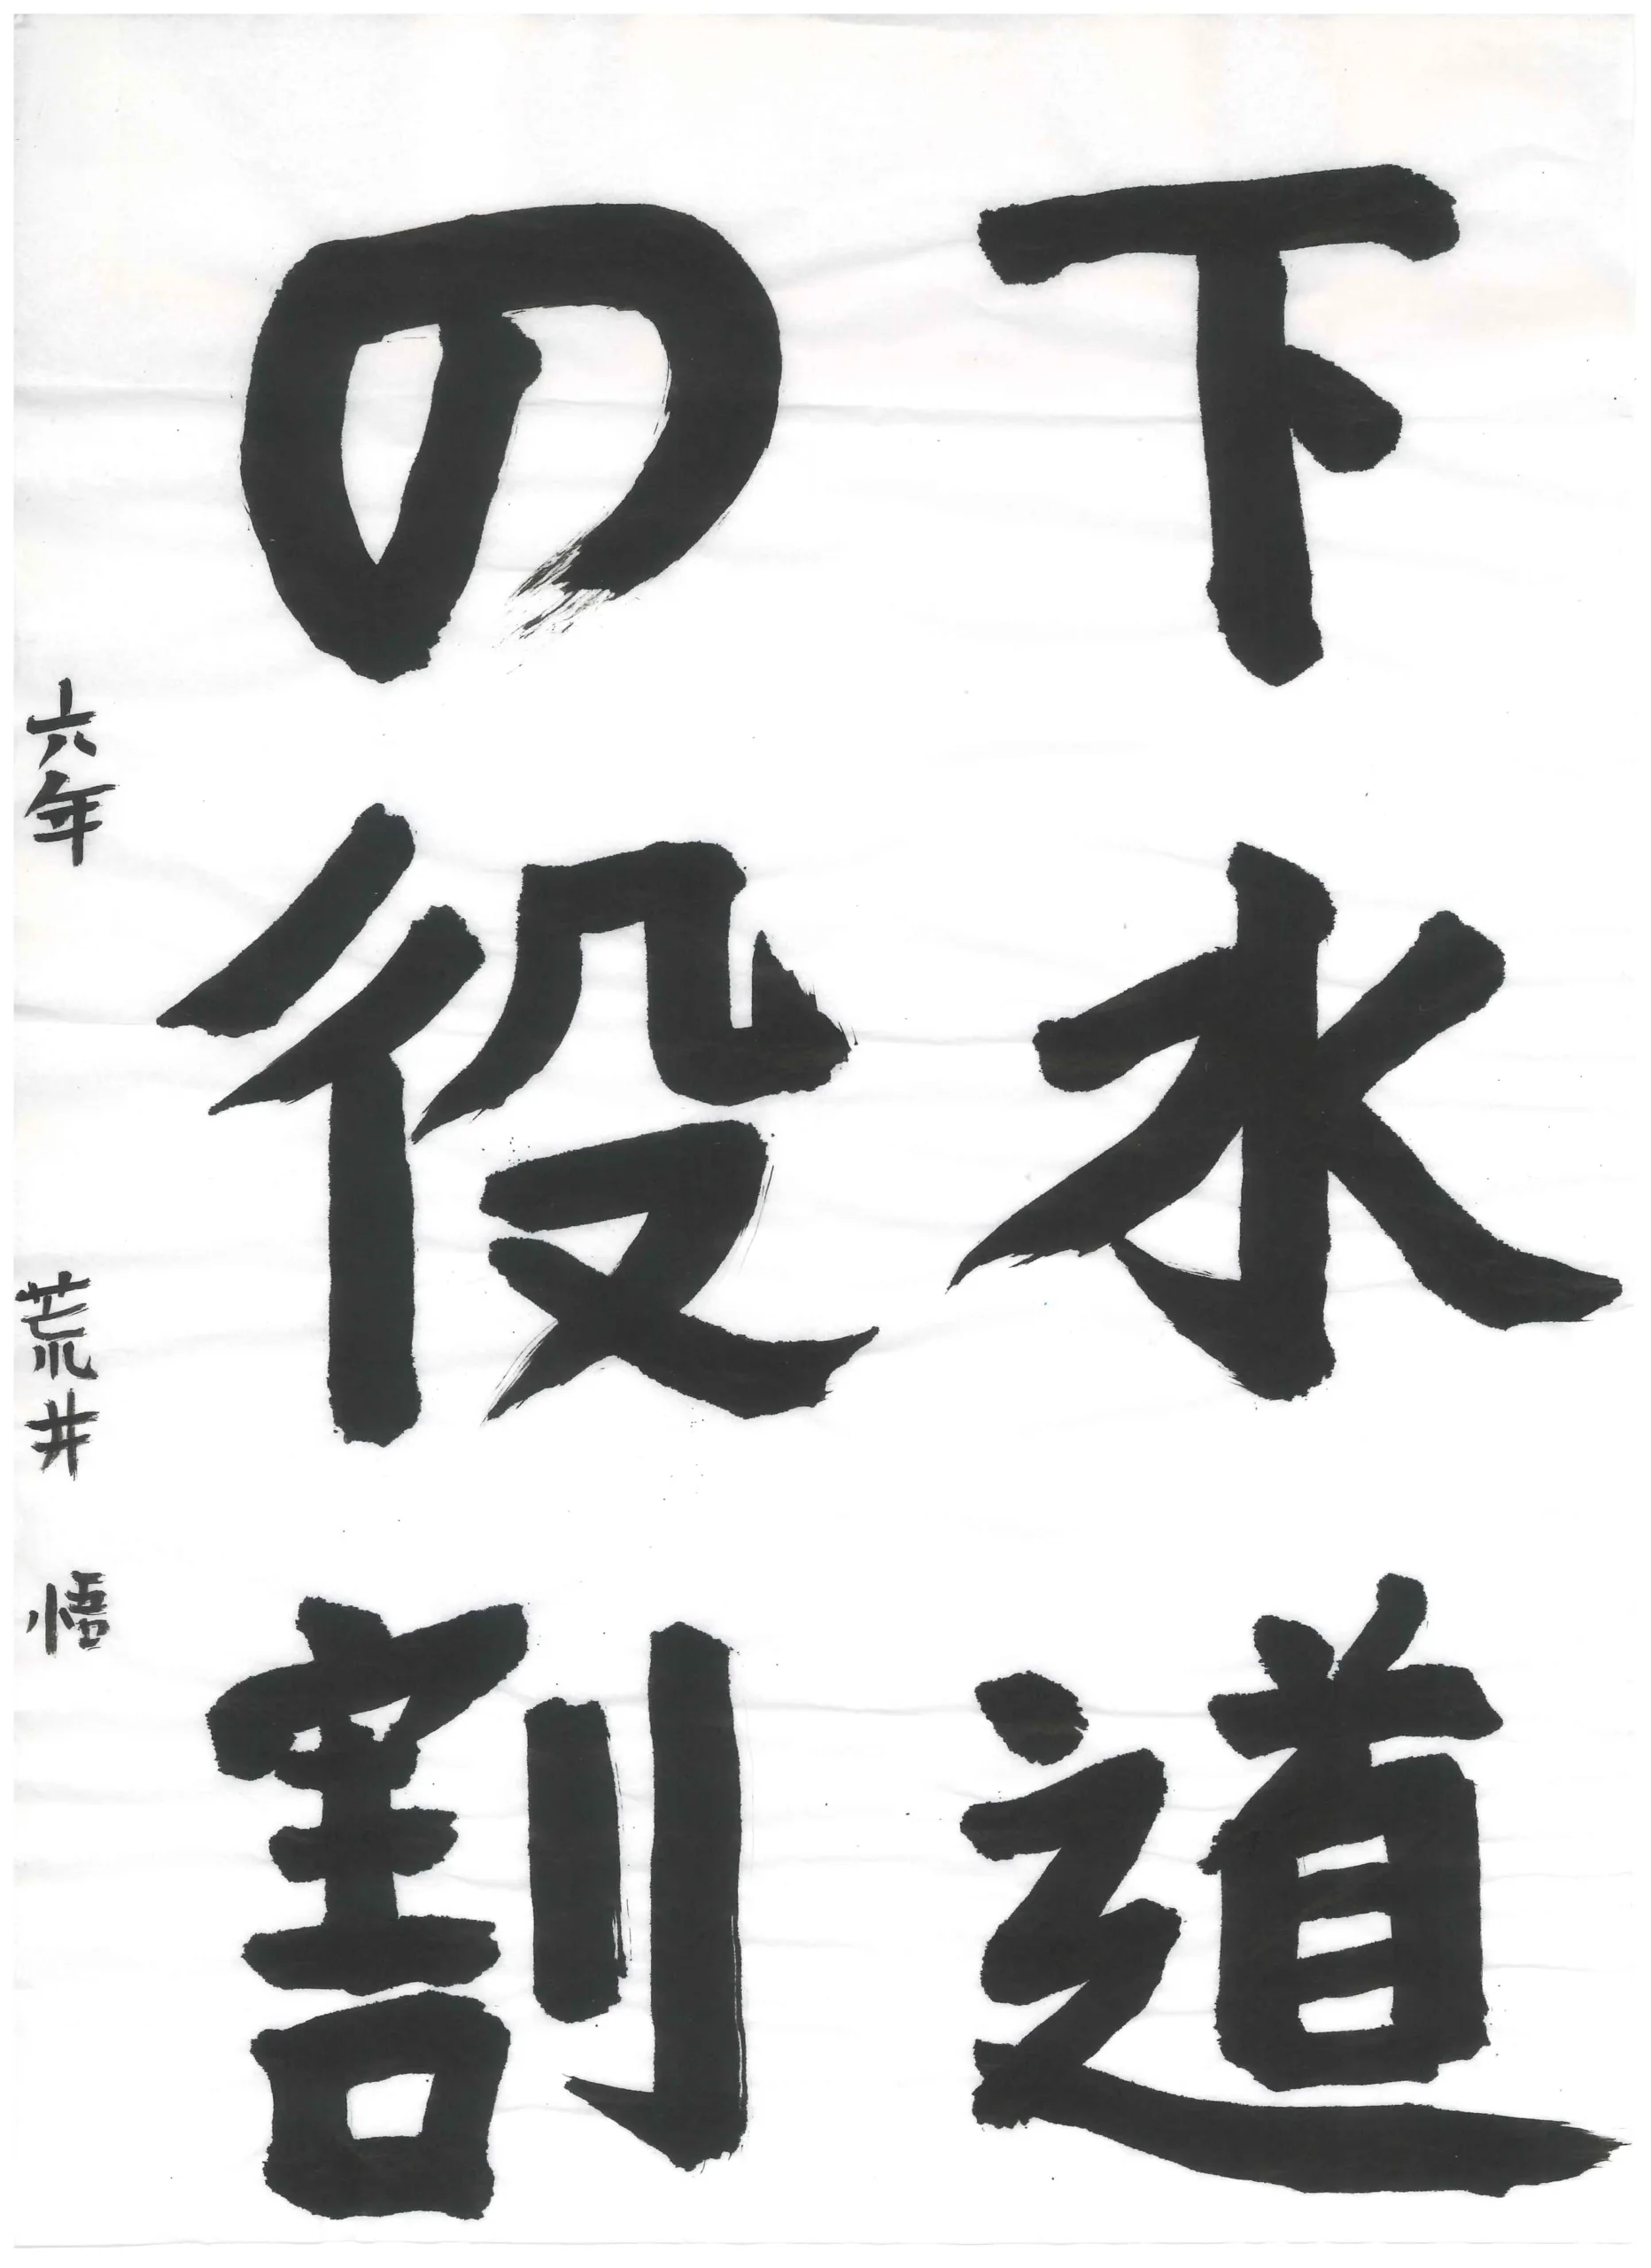 下水道
の役割
六年 荒井 悟